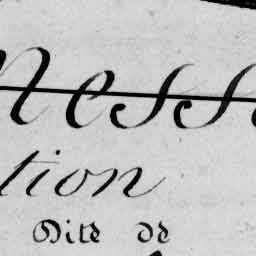 Messe
tion
Dite de